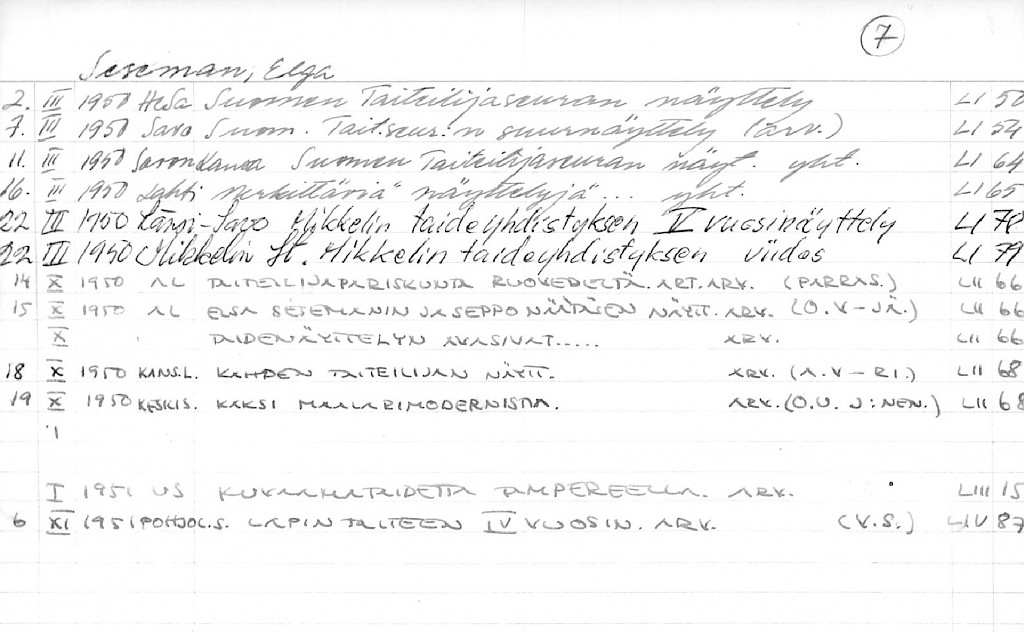 7
Seseman, Elga
2. III 1950 HeSa Suomen Taiteilijaseuran näyttely LI 50
7. III 1950 Savo Suom. Tait.seur:n suurnäyttely (arv.) LI 54
11. III 1950 SavonSanoma Suomen Taiteilijaseuran näyt. yht. LI 64
16. III 1950 Lahti "Merkittäviä" näyttelyjä... yht. LI 65
22 III 1950 Länsi-Savo Mikkelin taideyhdistyksen V vuosinäyttely LI 78
22 III 1950 Mikkelin St. Mikkelin taideyhdistyksen viides LI 79
14 X 1950 AL TAITEILIJAPARISKUNTA RUOVEDELTÄ. ART. ARV. (PARRAS.) LII 66
15 X 1950 AL ELSA SESEMANIN JA SEPPO NÄÄTÄSEN NÄYTT. ARV. (O.V-JÄ.) LII 66
X TAIDENÄYTTELYN AVASIVAT..... ARV. LII 66
18 X 1950 KANS.L. KAHDEN TAITEILIJAN NÄYTT. ARV. (A.V-RI.) LII 68
19 X 1950 KESKIS. KAKSI MAALARIMODERNISTIA. ARV. (O.U. J:NEN.) LII 68
I 1951 US KUVAAMATAIDETTA TAMPEREELLA. ARV. LIII 15
6 XI 1951 POHJOL.S. LAPIN TAITEEN IV VUOSIN. ARV. (V.S.) LIV 87